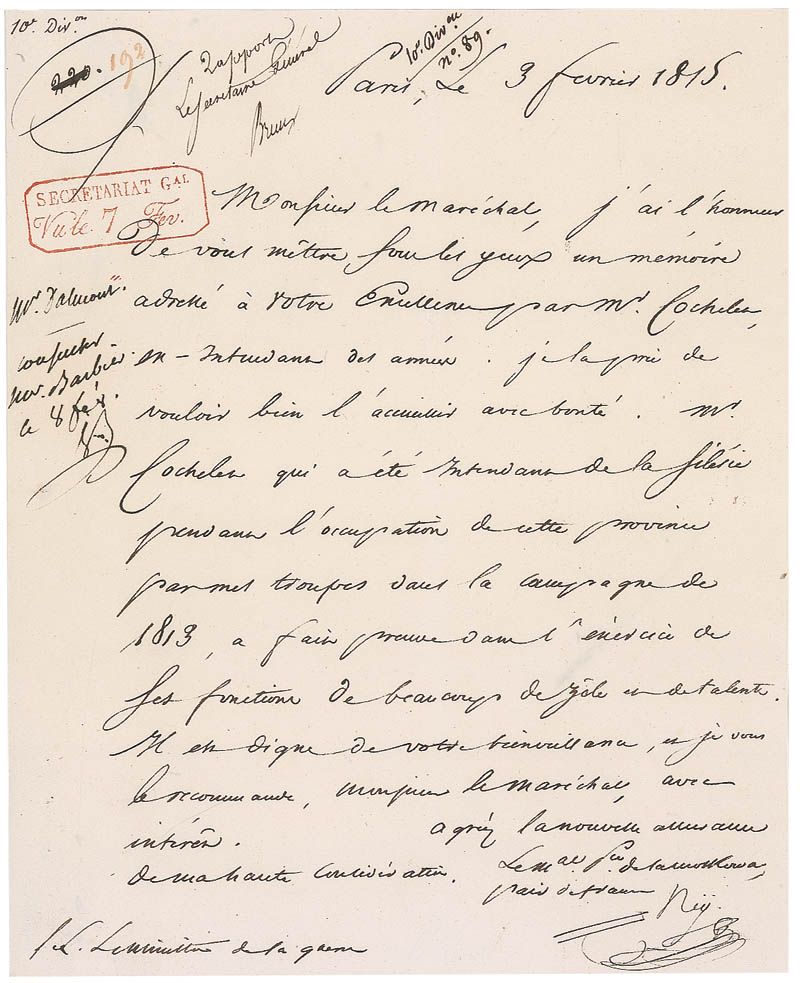 10e Divon
220. 192
Rapport
Le Secretaire Général
10e Divon
no. 89.
Paris, Le 3 fevrier 1815.
SECRETARIAT GAL
7 Fev.
Monsieur le maréchal, j'ai l'honneur
de vous mêttre, sous les yeux un mémoire
adressé à Votre Excellence par Mr. Cochelet,
ex-Intendant des armées. je la prie de
vouloir bien l'accueillir avec bonté. Mr.
Cochelet qui a été Intendant de la Silésie
pendant l'occupation de cette province
par mes troupes dans la campagne de
1813, a fait preuve dans l'éxercice de
ses fonctions de beaucoup de zèle et de talents.
Il est digne de votre bienveillance, et je vous
le recommande, monsieur le maréchal, avec
intérêt. agréez la nouvelle assurance
de ma haute considération.
Le mal Pce de la moskowa,
pair de france
Ney.
Mr. Dalmont.
consulter
Mr. Barbier
le 8 fév.
S. E. Le Ministre de la guerre